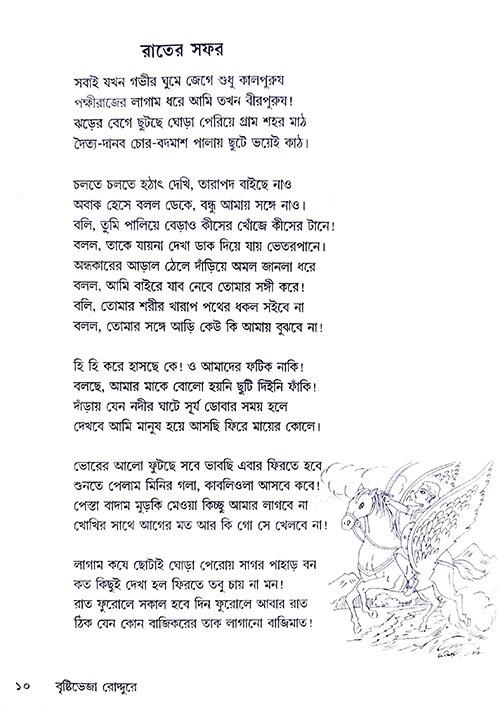 রাতের সফর
সবাই যখন গভীর ঘুমে জেগে শুধু কালপুরুষ
পক্ষীরাজের লাগাম ধরে আমি তখন বীরপুরুষ!
ঝড়ের বেগে ছুটছে ঘোড়া পেরিয়ে গ্রাম শহর মাঠ
দৈত্য-দানব চোর-বদমাশ পালায় ছুটে ভয়েই কাঠ।
চলতে চলতে হঠাৎ দেখি, তারাপদ বাইছে নাও
অবাক হেসে বলল ডেকে, বন্ধু আমায় সঙ্গে নাও।
বলি, তুমি পালিয়ে বেড়াও কীসের খোঁজে কীসের টানে!
বলল, তাকে যায়না দেখা ডাক দিয়ে যায় ভেতরপানে।
অন্ধকারের আড়াল ঠেলে দাঁড়িয়ে অমল জানলা ধরে
বলল, আমি বাইরে যাব নেবে তোমার সঙ্গী করে!
বলি, তোমার শরীর খারাপ পথের ধকল সইবে না
বলল, তোমার সঙ্গে আড়ি কেউ কি আমায় বুঝবে না!
হি হি করে হাসছে কে! ও আমাদের ফটিক নাকি!
বলছে, আমার মাকে বোলো হয়নি ছুটি দিইনি ফাঁকি!
দাঁড়ায় যেন নদীর ঘাটে সূর্য ডোবার সময় হলে
দেখবে আমি মানুষ হয়ে আসছি ফিরে মায়ের কোলে।
ভোরের আলো ফুটছে সবে ভাবছি এবার ফিরতে হবে
শুনতে পেলাম মিনির গলা, কাবলিওলা আসবে কবে!
পেস্তা বাদাম মুড়কি মেওয়া কিচ্ছু আমার লাগবে না
খোখির সাথে আগের মত আর কি গো সে খেলবে না!
লাগাম কষে ছোটাই ঘোড়া পেরোয় সাগর পাহাড় বন
কত কিছুই দেখা হল ফিরতে তবু চায় না মন!
রাত ফুরোলে সকাল হবে দিন ফুরোলে আবার রাত
ঠিক যেন কোন বাজিকরের তাক লাগানো বাজিমাত!
১০ বৃষ্টিভেজা রোদ্দুরে